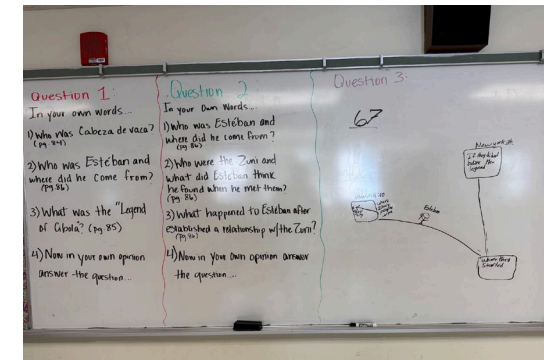 Question 1:
In your own words...
1) Who was Cabeza de vaca?
(pg. 84)
2) Who was Estéban and
where did he come from?
(pg 86)
3) What was the "Legend
of Cibola"? (pg. 85)
4) Now in your own opinion
answer the question...
Question 2:
In your own words...
1) Who was Estéban and
where did he come from?
(pg. 86)
2) Who were the Zuni and
what did Estéban think
he found when he met them?
(pg 86)
3) What happened to Estéban after
established a relationship w/the Zuni?
(pg. 86)
4) Now in your own opinion answer
the question...
Question 3:
67
legend
Estéban
where they
started